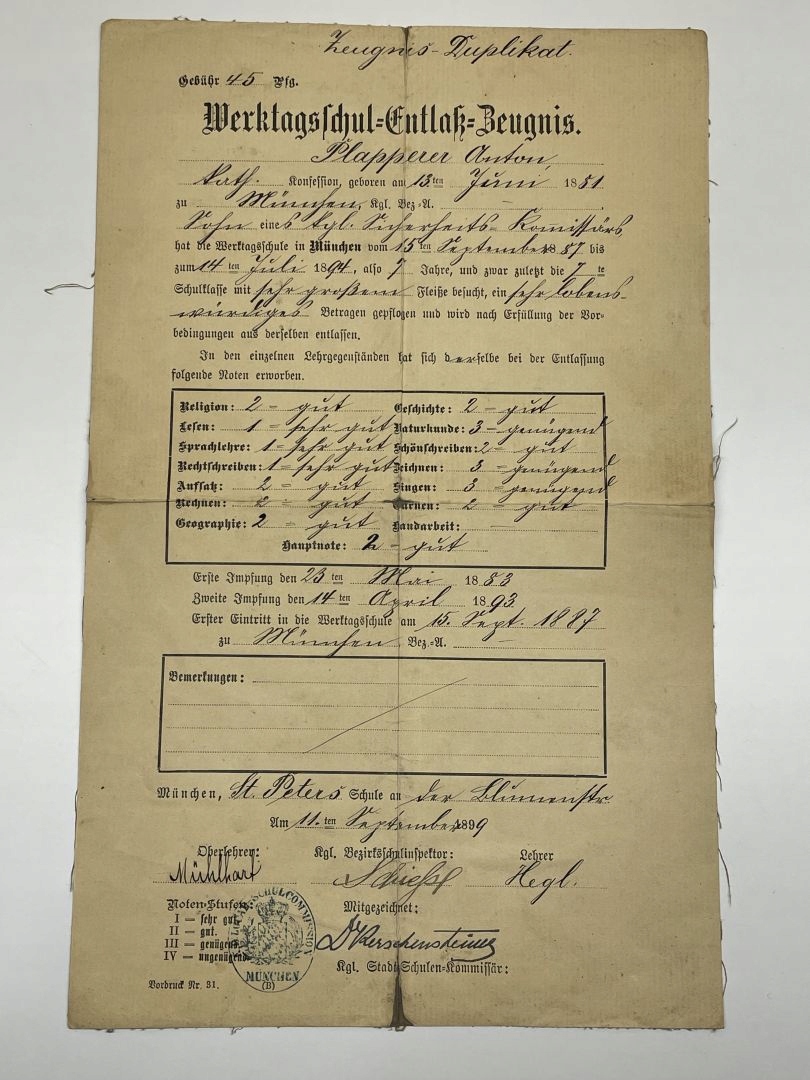 Zeugnis-Duplikat.
Gebühr 45 Pfg.
Werktagsschul-Entlaß-Zeugnis.
Plapperer Anton,
kath. Konfession, geboren am 13.ten Juni 1881
zu München, Kgl. Bez.-A. —
Sohn eines kgl. Sicherheits-Komissärs
hat die Werktagsschule in München vom 15ten September 1887 bis
zum 14ten Juli 1894, also 7 Jahre, und zwar zuletzt die 7.te
Schulklasse mit sehr großem Fleiße besucht, ein sehr lobens-
würdiges Betragen gepflogen und wird nach Erfüllung der Vor-
bedingungen aus derselben entlassen.
In den einzelnen Lehrgegenständen hat sich derselbe bei der Entlassung
folgende Noten erworben.
Religion: 2 = gut Geschichte: 2 = gut
Lesen: 1 = sehr gut Naturkunde: 3 = genügend
Sprachlehre: 1 = sehr gut Schönschreiben: 2 = gut
Rechtschreiben: 1 = sehr gut Zeichnen: 3 = genügend
Aufsatz: 2 = gut Singen: 3 = genügend
Rechnen: 2 = gut Turnen: 2 = gut
Geographie: 2 = gut Handarbeit: —
Hauptnote: 2 = gut
Erste Impfung den 23ten Mai 1883
Zweite Impfung den 14ten April 1893.
Erster Eintritt in die Werktagsschule am 15. Sept. 1887
zu München Bez.-A. —
Bemerkungen:
München, St. Peters Schule an der Blumenstr.
Am 11.ten September 1899
Oberlehrer: Kgl. Bezirksschulinspektor: Lehrer
Mühlhart Hegl.
Noten-Stufen: Mitgezeichnet:
I — sehr gut.
II — gut.
III — genügend
IV — ungenügend
Dr Kerschensteiner
Kgl. Stadt-Schulen-Kommissär:
LOKAL-SCHULCOMMISSION
MÜNCHEN
(B)
Vordruck Nr. 31.